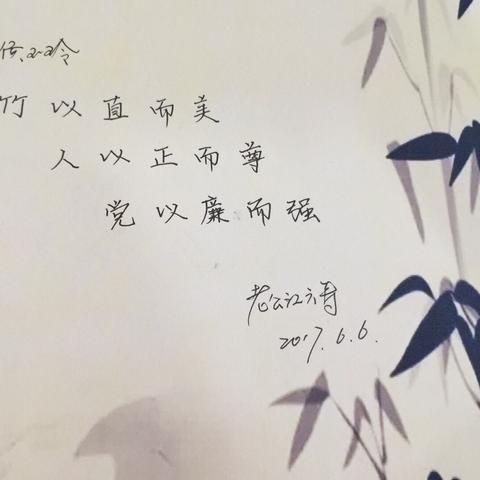 竹以直而美
人以正而尊
党以廉而强
老公江涛
2017.6.6.